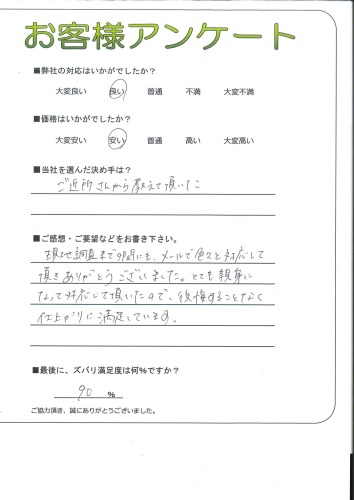 お客様アンケート
■弊社の対応はいかがでしたか？
大変良い 良い 普通 不満 大変不満
■価格はいかがでしたか？
大変安い 安い 普通 高い 大変高い
■当社を選んだ決め手は？
ご近所さんから教えて頂いた
■ご感想・ご要望などをお書き下さい。
現地調査まで の間にも、メールで色々と対応して
頂きありがとうございました。とても親身に
なって対応して頂いたので、後悔することなく
仕上がりに満足しています。
■最後に、ズバリ満足度は何％ですか？
90 ％
ご協力頂き、誠にありがとうございました。